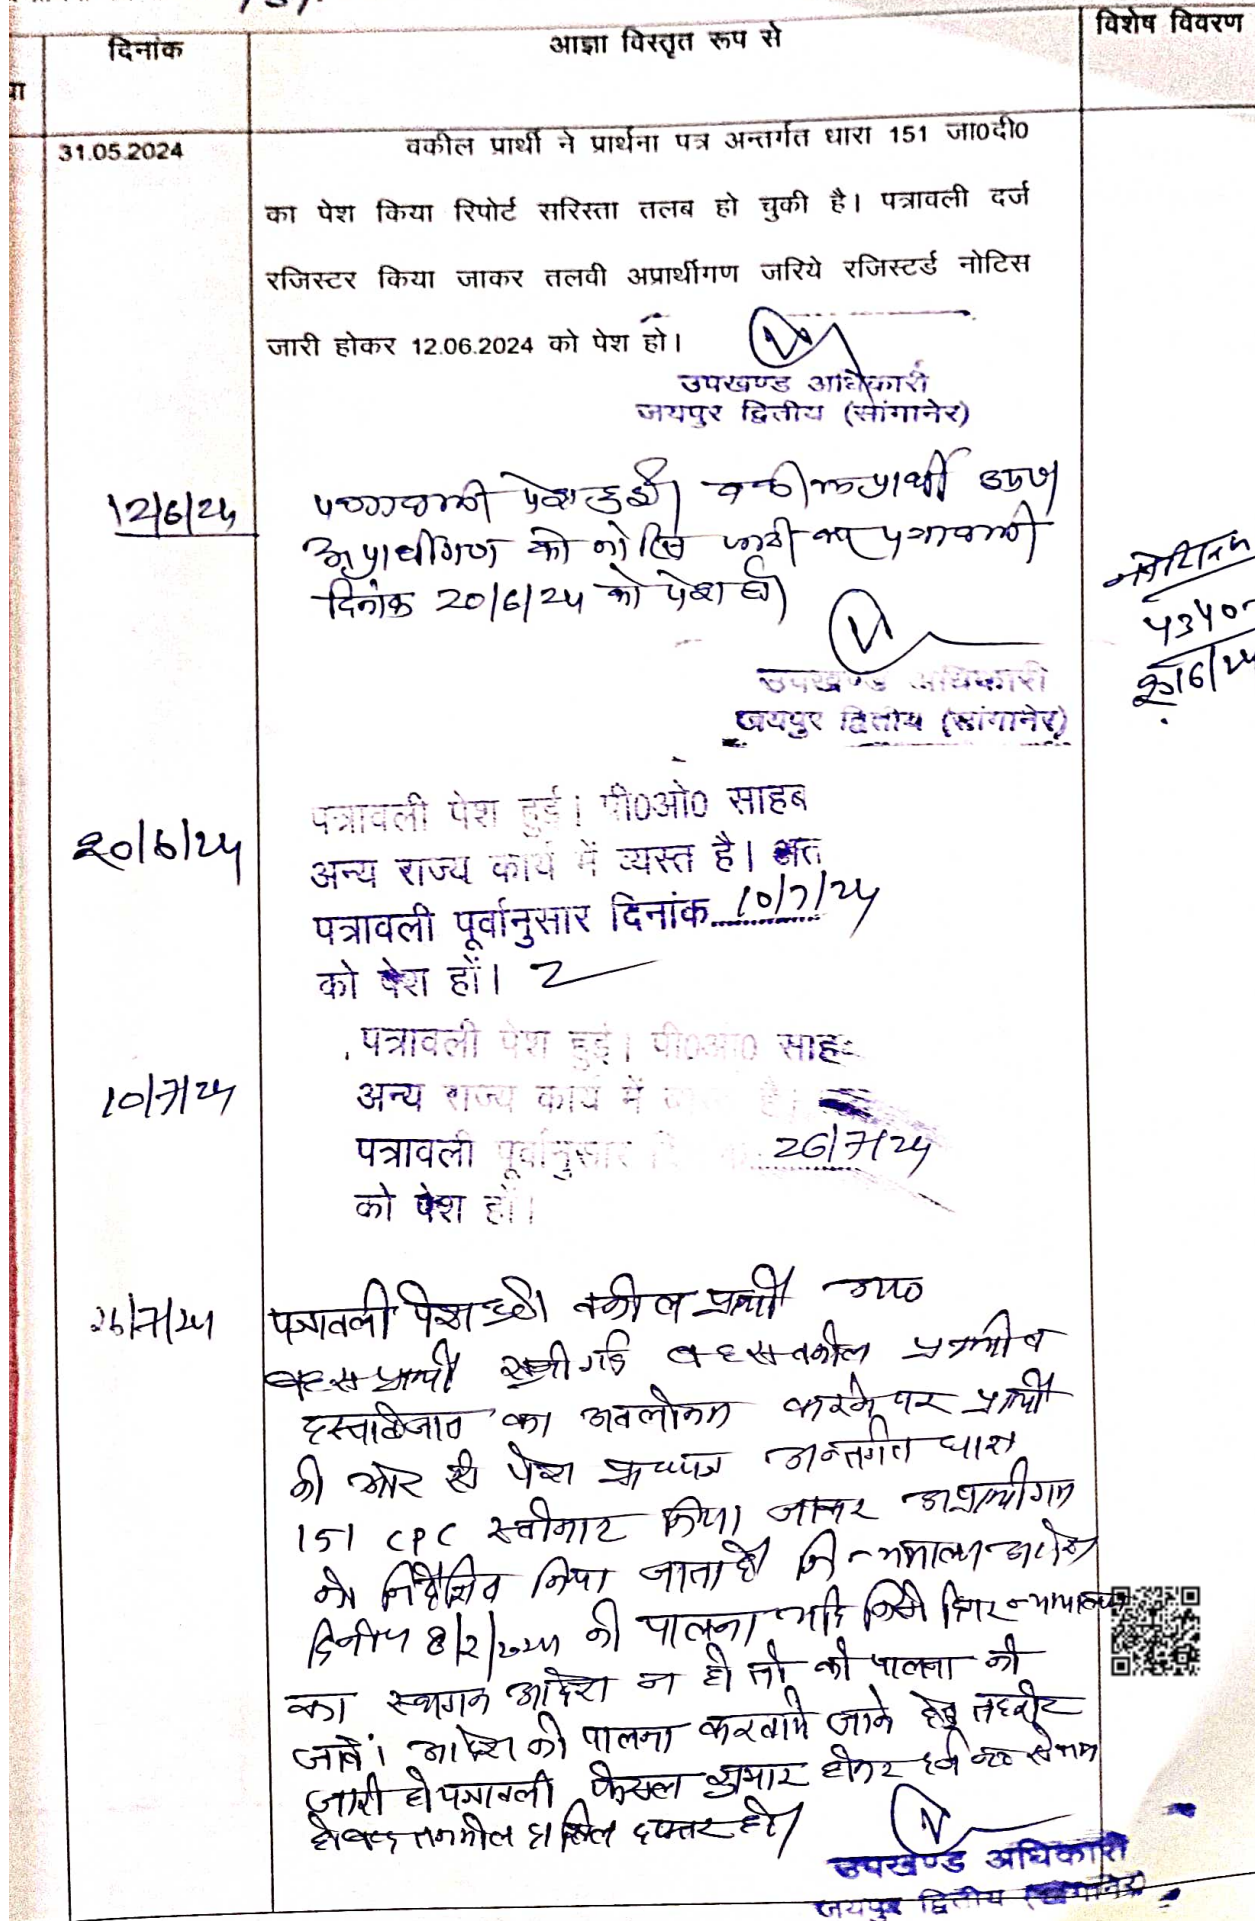 दिनांक
आज्ञा विस्तृत रूप से
विशेष विवरण
31.05.2024
वकील प्रार्थी ने प्रार्थना पत्र अन्तर्गत धारा 151 जा0दी0
का पेश किया रिपोर्ट सरिस्ता तलब हो चुकी है। पत्रावली दर्ज
रजिस्टर किया जाकर तलवी अप्रार्थीगण जरिये रजिस्टर्ड नोटिस
जारी होकर 12.06.2024 को पेश हो।
उपखण्ड अधिकारी
जयपुर द्वितीय (सांगानेर)
12/6/24
पत्रावली पेश हुई। वकील प्रार्थी उप0
अप्रार्थीगण को नोटिस जारी कर पत्रावली
दिनांक 20/6/24 को पेश हो।
उपखण्ड अधिकारी
जयपुर द्वितीय (सांगानेर)
20/6/24
पत्रावली पेश हुई। पी0ओ0 साहब
अन्य राज्य कार्य में व्यस्त है। अत
पत्रावली पूर्वानुसार दिनांक 10/7/24
को पेश हों।
10/7/24
पत्रावली पेश हुई। पी0ओ0 साहब
अन्य राज्य कार्य में व्यस्त है।
पत्रावली पूर्वानुसार दिनांक 26/7/24
को पेश हों।
26/7/24
पत्रावली पेश हुई। वकील प्रार्थी उप0
बहस प्रार्थी सुनी गई बहस वकील प्रार्थी व
दस्तावेजात का अवलोकन करने पर प्रार्थी
की ओर से पेश प्रा0पत्र अन्तर्गत धारा
151 CPC स्वीकार किया जाकर अप्रार्थीगण
को निर्देशित किया जाता है कि न्यायालय आदेश
दिनांक 8/2/2024 की पालना यदि किसी न्यायालय
का स्थगन आदेश न हो तो की पालना की
जावें। आदेश की पालना करवाये जाने हेतु तहरीर
जारी हो पत्रावली फैसल शुमार होकर नम्बर से कम
हो बाद तकमील दाखिल दफ्तर हो।
उपखण्ड अधिकारी
जयपुर द्वितीय (सांगानेर)